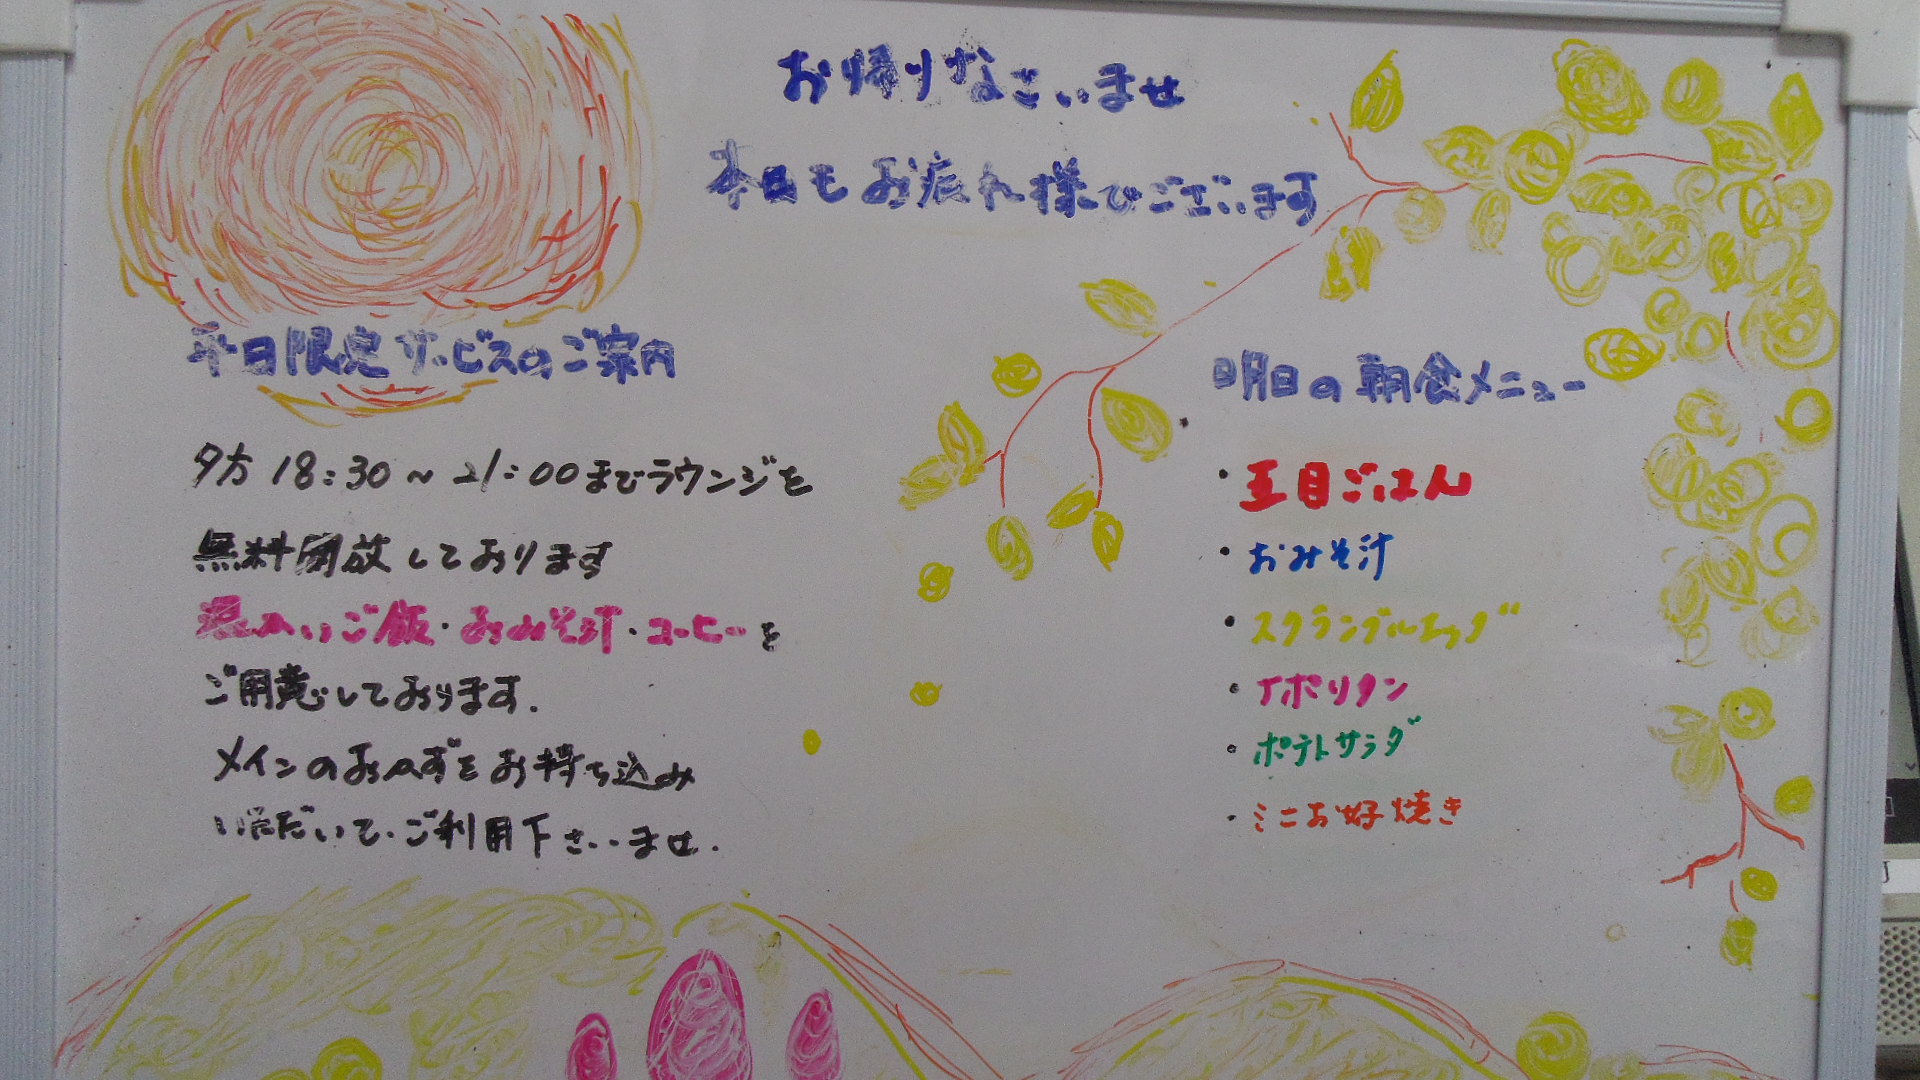 お帰りなさいませ
本日もお疲れ様でございます
平日限定サービスのご案内
夕方18:30～21:00までラウンジを
無料開放しております
温かいご飯・おみそ汁・コーヒーを
ご用意しております.
メインのおかずをお持ち込み
いただいて・ご利用下さいませ.
明日の朝食メニュー
・五目ごはん
・おみそ汁
・スクランブルエッグ
・ナポリタン
・ポテトサラダ
・ミニお好焼き